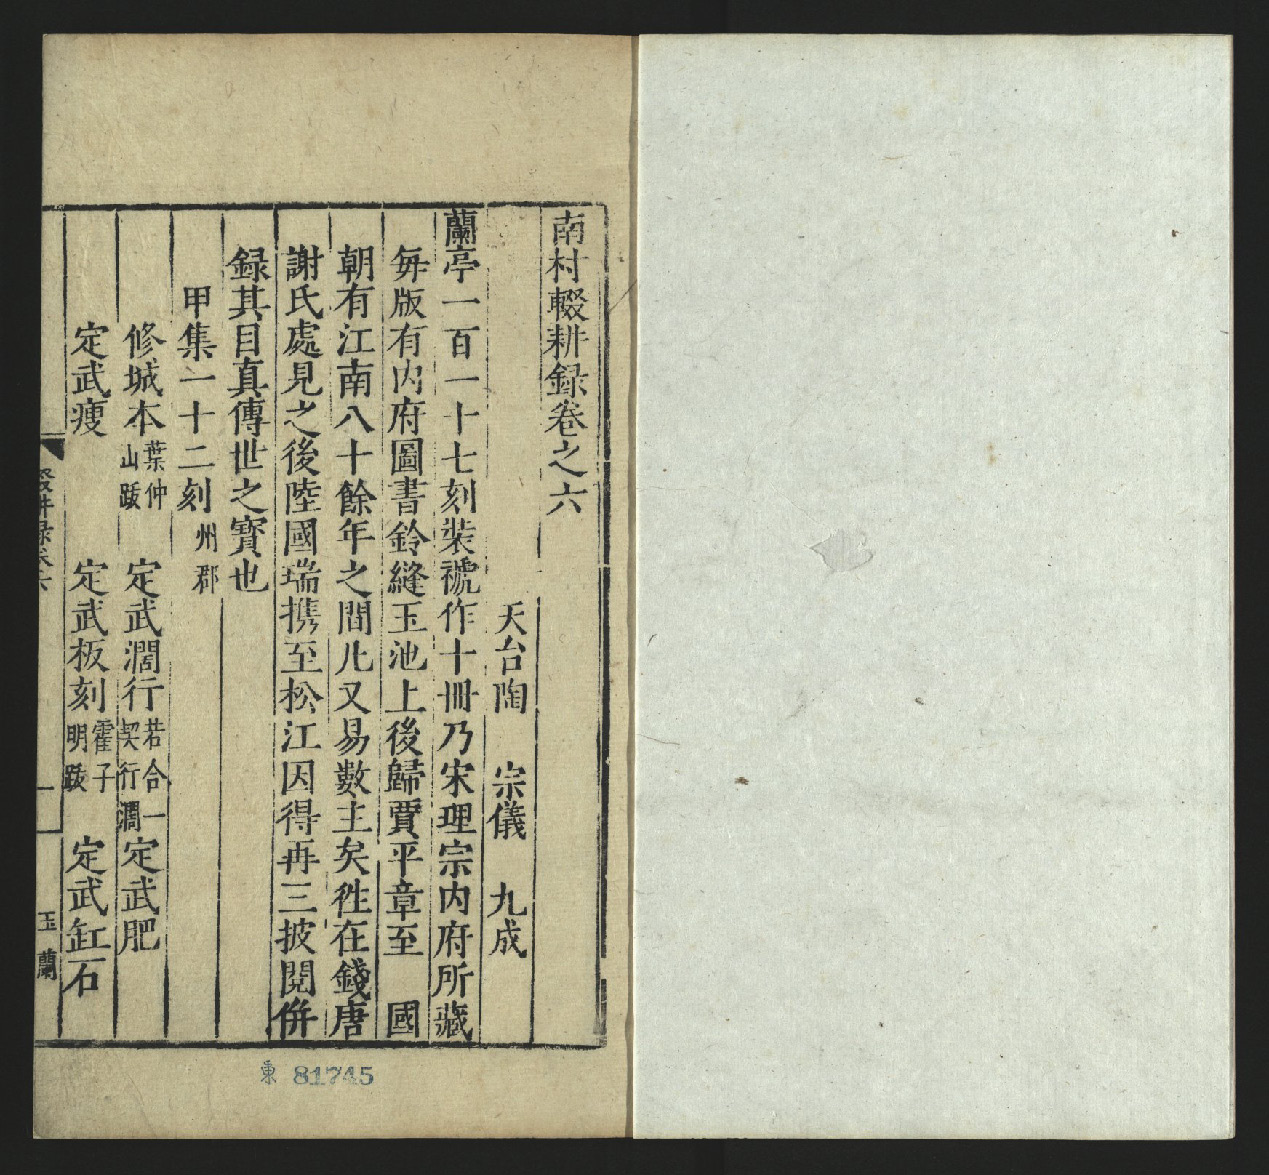 南村輟耕録卷之六
天台陶 宗儀 九成
蘭亭一百一十七刻裝褫作十冊乃宋理宗内府所藏
每版有内府圖書鈐縫玉池上後歸賈平章至 國
朝有江南八十餘年之間凡又易數主矣徃在錢唐
謝氏處見之後陸國瑞携至松江因得再三披閱併
録其目真傳世之寳也
甲集一十二刻 州郡
修城本 葉仲山跋 定武濶行 若合一契行濶 定武肥
定武瘦 定武板刻 霍子明跋 定武缸石
輟耕录卷六 一 玉蘭
東 81745